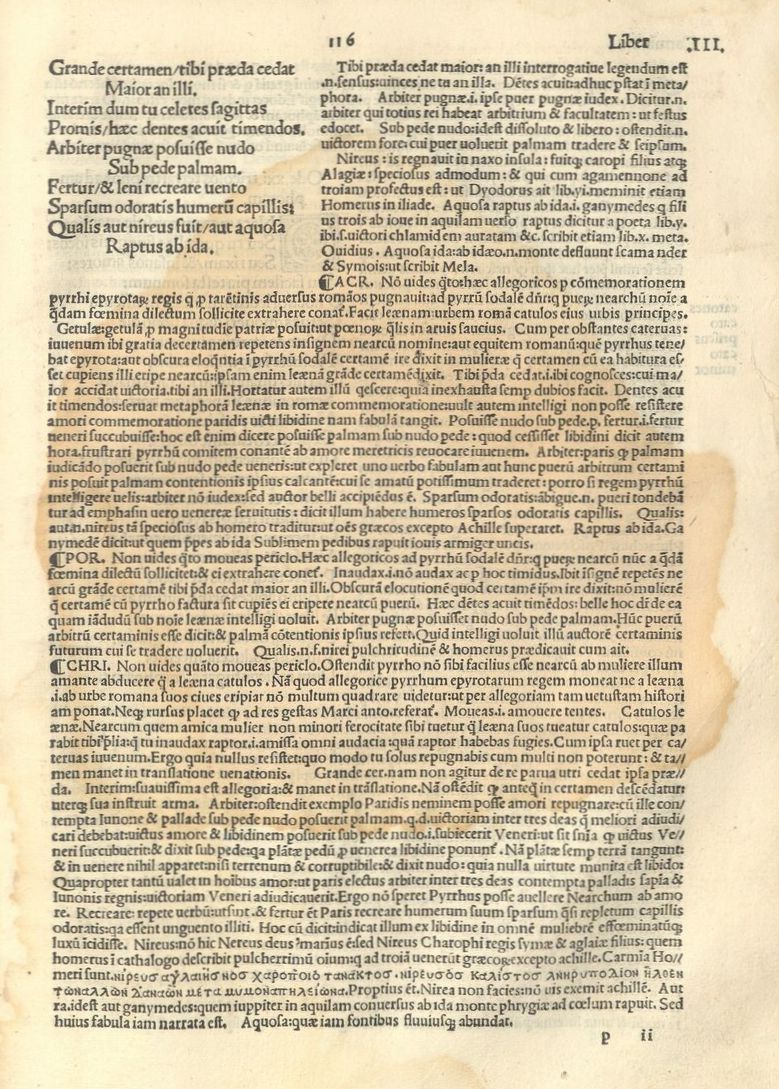 116
Liber .III.
Grande certamen/tibi præda cedat
Maior an illi.
Interim dum tu celetes sagittas
Promis/hæc dentes acuit timendos.
Arbiter pugnæ posuisse nudo
Sub pede palmam.
Fertur/& leni recreare uento
Sparsum odoratis humerũ capillis:
Qualis aut nireus fuit/aut aquosa
Raptus ab ida.
Tibi præda cedat maior: an illi interrogatiue legendum est
.n. sensus: uinces ne tu an illa. Dẽtes acuit: adhuc pstat ĩ meta/
phora. Arbiter pugnæ.i. ipse puer pugnæ iudex. Dicitur.n.
arbiter qui totius rei habeat arbitrium & facultatem: ut festus
edocet. Sub pede nudo: idest dissoluto & libero: ostendit.n.
uictorem fore: cui puer uoluerit palmam tradere & seipsum.
Nireus: is regnauit in naxo insula: fuitq; caropi filius atq;
Alagiæ: speciosus admodum: & qui cum agamennone ad
troiam profectus est: ut Dyodorus ait lib.yi. meminit etiam
Homerus in iliade. Aquosa raptus ab ida.i. ganymedes q̃ fili
us trois ab ioue in aquilam uerso raptus dicitur a poeta lib.y.
ibi.s. uictori chlamidem auratam &c. scribit etiam lib.x. meta.
Ouidius. Aquosa ida: ab idæo.n. monte defluunt scamander
& Symois: ut scribit Mela.
¶ACR. Nõ uides q̃to: hæc allegoricos p cõmemorationem
pyrrhi epyrotaꝝ regis q̃ ꝓ tarẽtinis aduersus romãos pugnauit: ad pyrrũ sodalẽ dñr: q̃ pueꝝ nearchũ noĩe a
q̃dam fœmina dilectum sollicite extrahere conat̃. Facit leænam: urbem romã catulos eius urbis principes.
Getulæ: getulã ꝓ magnitudĩe patriæ posuit: ut pœnoꝝ q̃lis in aruis saucius. Cum per obstantes cateruas:
iuuenum ibi gratia decertarem repetens insignem nearcũ nomine: aut equitem romanũ: quẽ pyrrhus tene/
bat epyrota: aut obscura eloq̃ntia ĩ pyrrhũ sodalẽ certamẽ ire dixit in mulieræ q̃ certamen cũ ea habitura es/
set cupiens illi eripe nearcũ: ipsam enim leænã grãde certamẽ dixit. Tibi p̃da cedat.i. ibi cognosces: cui ma/
ior accidat uictoria. tibi an illi. Hortatur autem illũ q̃escere: quia inexhausta semp dubios facit. Dentes acu
it timendos: seruat metaphorã leænæ in romæ commemoratione: uult autem intelligi non posse resistere
amori commemoratione paridis uicti libidine nam fabulã tangit. Posuisse nudo sub pede.p. fertur.i. fertur
ueneri succubuisse: hoc est enim dicere posuisse palmam sub nudo pede: quod cessisset libidini dicit autem
hora. frustrari pyrrhũ comitem conantẽ ab amore meretricis reuocare iuuenem. Arbiter: paris ꝙ palmam
iudicãdo posuerit sub nudo pede ueneris: ut expleret uno uerbo fabulam aut hunc puerũ arbitrum certami
nis posuit palmam contentionis ipsius calcantẽ: cui se amatũ potissimum traderet: porro si regem pyrrhũ
intelligere uelis: arbiter nõ iudex: sed auctor belli accipiẽdus ẽ. Sparsum odoratis: ãbigue.n. pueri tondebã
tur ad emphasin uero uenereæ seruitutis: dicit illum habere humeros sparsos odoratis capillis. Qualis:
aut.n. nireus tã speciosus ab homero traditur: ut oẽs græcos excepto Achille superaret. Raptus ab ida. Ga
nymedẽ dicit: ut quem p̃pes ab ida Sublimem pedibus rapuit iouis armiger uncis.
¶POR. Non uides q̃to moueas periclo. Hæc allegoricos ad pyrrhũ sodalẽ dñr: q̃ pueꝝ nearcũ nũc a q̃dã
fœmina dilectũ sollicitet: & ei extrahere conet̃. Inaudax.i. nõ audax ac ꝓ hoc timidus. Ibit ĩsignẽ repetẽs ne
arcũ grãde certamẽ tibi p̃da cedat maior an illi. Obscurã elocutionẽ quod certamẽ ip̃m ire dixit: nõ mulierẽ
q̃ certamẽ cũ pyrrho factura sit cupiẽs ei eripere nearcũ puerũ. Hæc dẽtes acuit timẽdos: belle hoc dr̃ de ea
quam iãdudũ sub noĩe leænæ intelligi uoluit. Arbiter pugnæ posuisset nudo sub pede palmam. Hũc puerũ
arbitrũ certaminis esse dicit: & palmã cõtentionis ipsius refert. Quid intelligi uoluit illũ auctorẽ certaminis
futurum cui se tradere uoluerit. Qualis.n.f. nirei pulchritudinẽ & homerus prædicauit cum ait.
¶CHRI. Non uides quãto moueas periclo. Ostendit pyrrho nõ sibi facilius esse nearcũ ab muliere illum
amante abducere q̃ a leæna catulos. Nã quod allegorice pyrrhum epyrotarum regem moneat ne a leæna
.i. ab urbe romana suos ciues eripiat nõ multum quadrare uidetur: ut per allegoriam tam uetustam histori
am ponat. Neq; rursus placet ꝙ ad res gestas Marci anto. referat̃. Moueas.i. amouere tentes. Catulos le
ænæ. Nearcum quem amica mulier non minori ferocitate sibi tuetur q̃ leæna suos tueatur catulos: quæ pa
rabit tibi p̃lia: q̃ tu inaudax raptor.i. amissa omni audacia: quã raptor habebas fugies. Cum ipsa ruet per ca/
teruas iuuenum. Ergo quia nullus resistet: quo modo tu solus repugnabis cum multi non poterunt: & ta//
men manet in translatione uenationis. Grande cer. nam non agitur de re parua utri cedat ipsa præ//
da. Interim: suauissima est allegoria: & manet in trãslatione. Nã ostẽdit ꝙ anteq̃ in certamen descẽdatur:
uterq; sua instruit arma. Arbiter: ostendit exemplo Paridis neminem posse amori repugnare: cũ ille con/
tempta Iunone & pallade sub pede nudo posuerit palmam. q.d. uictoriam inter tres deas q̃ meliori adiudi/
cari debebat: uictus amore & libidinem posuerit sub pede nudo.i. subiecerit Veneri: ut sit sñia ꝙ uictus Ve//
neri succubuerit: & dixit sub pede: q̃a plãtæ pedũ ꝓ uenerea libidine ponunt̃. Nã plãtæ semp terrã tangunt:
& in uenere nihil apparet: nisi terrenum & corruptibile: & dixit nudo: quia nulla uirtute munita est libido:
Quapropter tantũ ualet in hoĩbus amor: ut paris electus arbiter inter tres deas contempta palladis sapĩa &
Iunonis regnis: uictoriam Veneri adiudicauerit. Ergo nõ speret Pyrrhus posse auellere Nearchum ab amo
re. Recreare: repete uerbũ: ut sunt. & fertur ẽt Paris recreare humerum suum sparsum q̃si repletum capillis
odoratis: q̃a essent unguento illiti. Hoc cũ dicit: indicat illum ex libidine in omnẽ muliebrẽ effœminatũq;
luxũ icidisse. Nireus: nõ hic Nereus deus marius ẽ: sed Nireus Charophi regis symæ & aglaiæ filius: quem
homerus ĩ cathalogo describit pulcherrimũ oium: q̃ ad troiã uenerũt græcoꝝ: excepto achille. Carmĩa Ho//
meri sunt.
Proptius ẽt. Nirea non facies: nõ uis exemit achillẽ. Aut
ra. idest aut ganymedes: quem iuppiter in aquilam conuersus ab ida monte phrygiæ ad cœlum rapuit. Sed
huius fabula iam narrata est. Aquosa: quæ iam fontibus fluuiusq; abundat.
p ii